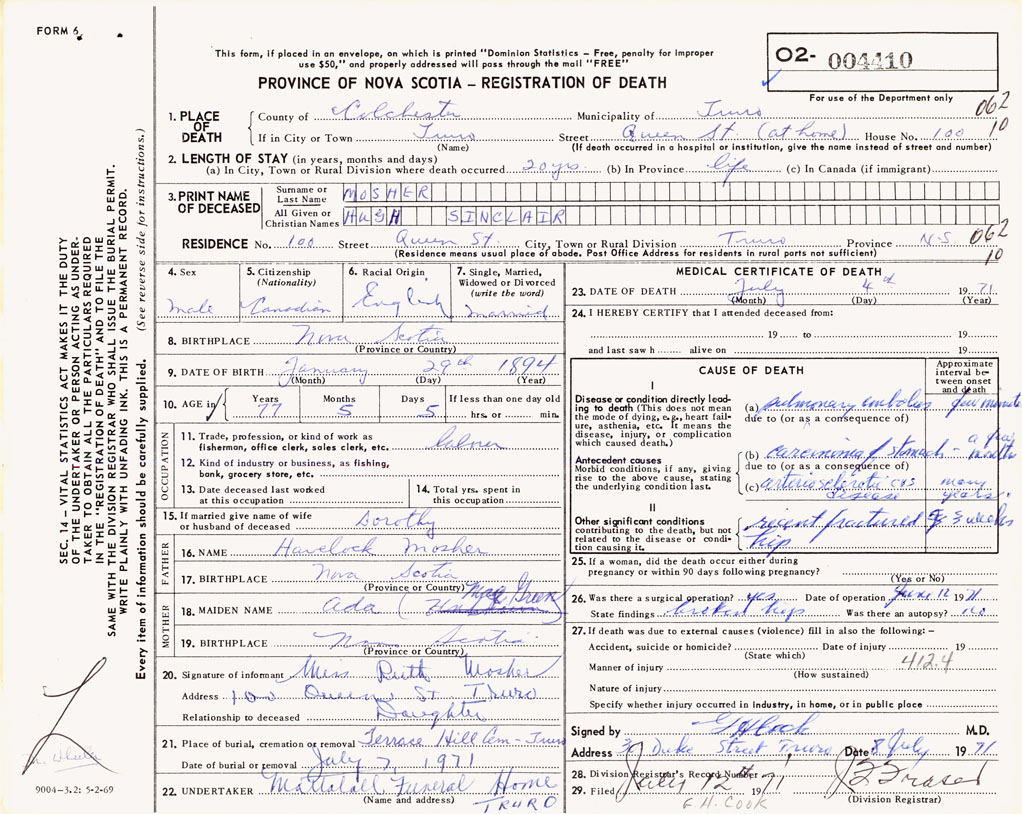 FORM 6
This form, if placed in an envelope, on which is printed "Dominion Statistics – Free, penalty for improper
use $50," and properly addressed will pass through the mail "FREE"
O2- 004410
PROVINCE OF NOVA SCOTIA – REGISTRATION OF DEATH
For use of the Department only
062
10
1. PLACE OF DEATH
County of Colchester Municipality of Truro
If in City or Town Truro Street Queen St (at home) House No. 100
(Name) (If death occurred in a hospital or institution, give the name instead of street and number)
2. LENGTH OF STAY (in years, months and days)
(a) In City, Town or Rural Division where death occurred 20 yrs. (b) In Province life (c) In Canada (if immigrant)
3. PRINT NAME OF DECEASED
Surname or Last Name MOSHER
All Given or Christian Names HUGH SINCLAIR
RESIDENCE No. 100 Street Queen St. City, Town or Rural Division Truro Province N-S
062
10
(Residence means usual place of abode. Post Office Address for residents in rural parts not sufficient)
4. Sex
male
5. Citizenship
(Nationality)
Canadian
6. Racial Origin
English
7. Single, Married,
Widowed or Divorced
(write the word)
married
8. BIRTHPLACE Nova Scotia
(Province or Country)
9. DATE OF BIRTH January 29th 1894
(Month) (Day) (Year)
10. AGE in
Years 77
Months 5
Days 5
If less than one day old
hrs. or min.
OCCUPATION
11. Trade, profession, or kind of work as
fisherman, office clerk, sales clerk, etc.
12. Kind of industry or business, as fishing,
bank, grocery store, etc.
13. Date deceased last worked
at this occupation
14. Total yrs. spent in
this occupation
15. If married give name of wife
or husband of deceased Dorothy
FATHER
16. NAME Havelock Mosher
17. BIRTHPLACE Nova Scotia
(Province or Country)
MOTHER
18. MAIDEN NAME Ada (Mac Green
19. BIRTHPLACE Nova Scotia
(Province or Country)
20. Signature of informant Miss Ruth Mosher
Address 100 Queen St Truro
Relationship to deceased Daughter
21. Place of burial, cremation or removal Terrace Hill Cem - Truro
Date of burial or removal July 7, 1971
22. UNDERTAKER Mattatall Funeral Home
(Name and address) TRURO
MEDICAL CERTIFICATE OF DEATH
23. DATE OF DEATH July 4th 1971
(Month) (Day) (Year)
24. I HEREBY CERTIFY that I attended deceased from:
19 to 19
and last saw h alive on 19
CAUSE OF DEATH
Approximate
interval be-
tween onset
and death
I
Disease or condition directly lead-
ing to death (This does not mean
the mode of dying, e.g., heart fail-
ure, asthenia, etc. It means the
disease, injury, or complication
which caused death.)
(a) pulmonary embolus few minutes
due to (or as a consequence of)
Antecedent causes
Morbid conditions, if any, giving
rise to the above cause, stating
the underlying condition last.
(b) carcinoma of stomach - a few months
due to (or as a consequence of)
(c) arteriosclerotic CVS disease many years
II
Other significant conditions
contributing to the death, but not
related to the disease or condi-
tion causing it.
recent fractured hip 3 weeks
25. If a woman, did the death occur either during
pregnancy or within 90 days following pregnancy?
(Yes or No)
26. Was there a surgical operation? yes Date of operation June 12 1971
State findings broken hip Was there an autopsy? no
27. If death was due to external causes (violence) fill in also the following: –
Accident, suicide or homicide? Date of injury 19
(State which) 412.4
Manner of injury
(How sustained)
Nature of injury
Specify whether injury occurred in industry, in home, or in public place
Signed by M.D.
Address Duke Street Truro Date 8 July 1971
28. Division Registrar's Record Number
29. Filed July 12th 1971
F.H. COOK
Fraser
(Division Registrar)
SEC. 14 – VITAL STATISTICS ACT MAKES IT THE DUTY
OF THE UNDERTAKER OR PERSON ACTING AS UNDER-
TAKER TO OBTAIN ALL THE PARTICULARS REQUIRED
IN THE "REGISTRATION OF DEATH" AND TO FILE THE
SAME WITH THE DIVISION REGISTRAR WHO SHALL ISSUE THE BURIAL PERMIT.
WRITE PLAINLY WITH UNFADING INK. THIS IS A PERMANENT RECORD.
Every item of information should be carefully supplied. (See reverse side for instructions.)
9004-3.2: 5-2-69